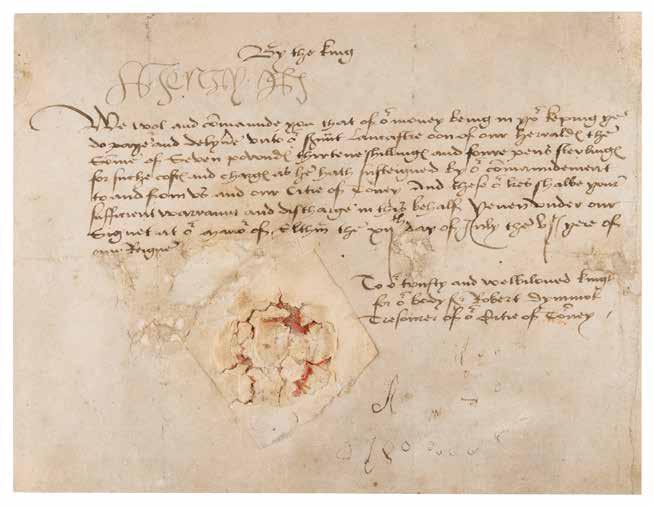 By the king
Henry R
We wol and com̄aunde you that of oʳ money being in yoʳ keping ye
do paye and delyuer vnto oʳ s̄uūt Lancastre oon of our herraldes the
Some of Seven powndes thirtene shillinges and foure pens sterlinges
for suche costes and charges as he hath susteigned by oʳ com̄aundement
to and from vs and our Citie of Torney And thise oʳ lr̄es shalbe your
sufficient warraunt and discharge in this behalf Yeuen vnder our
Signet at oʳ manoʳ of Elthm̄ the day of July the vjᵗʰ yere of
our Reigne
To oʳ trusty and welbiloued knight
for oʳ body Sʳ Robert Dymmok
Tresourer of oʳ Citie of Torney